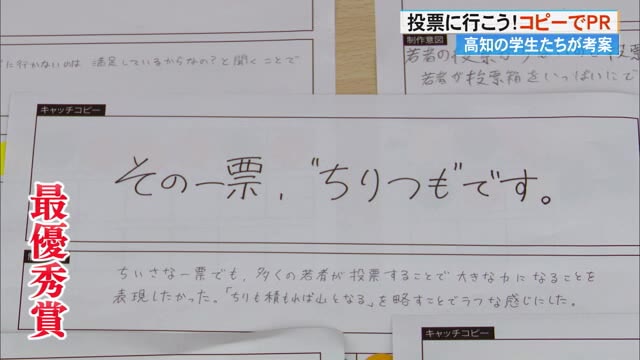 投票に行こう!コピーでPR
高知の学生たちが考案
に行かないのは 満足しているからなの?と聞くことで
制作意図
若者の投票
若者が投票箱をいっぱいにで
キャッチコピー
その一票、“ちりつも”です。
最優秀賞
ちいさな一票でも、多くの若者が投票することで大きな力になることを
表現したかった。「ちりも積もれば山となる」を略すことでラフな感じにした。
キャッチコピー